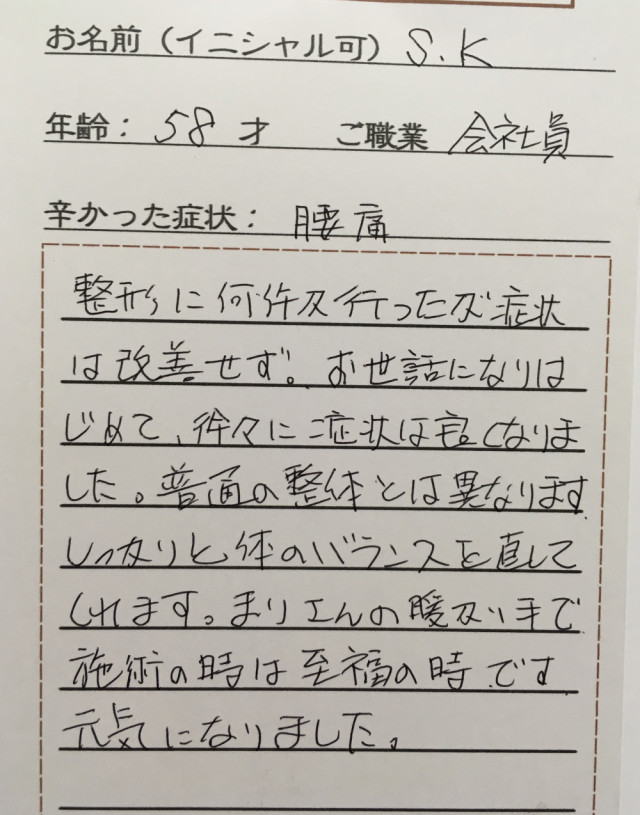 お名前（イニシャル可） S.K
年齢： 58 才 ご職業 会社員
辛かった症状： 腰痛
整形に何件か行ったが症状
は改善せず。お世話になりは
じめて、徐々に症状は良くなりま
した。普通の整体とは異なります
しっかりと体のバランスを直して
くれます。まりえんの暖かい手で
施術の時は至福の時です
元気になりました。